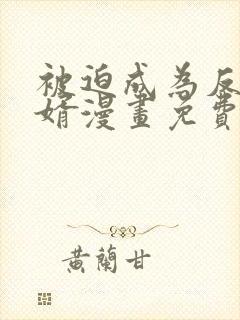 被迫成為反
婿漫畫免費
黃蘭甘